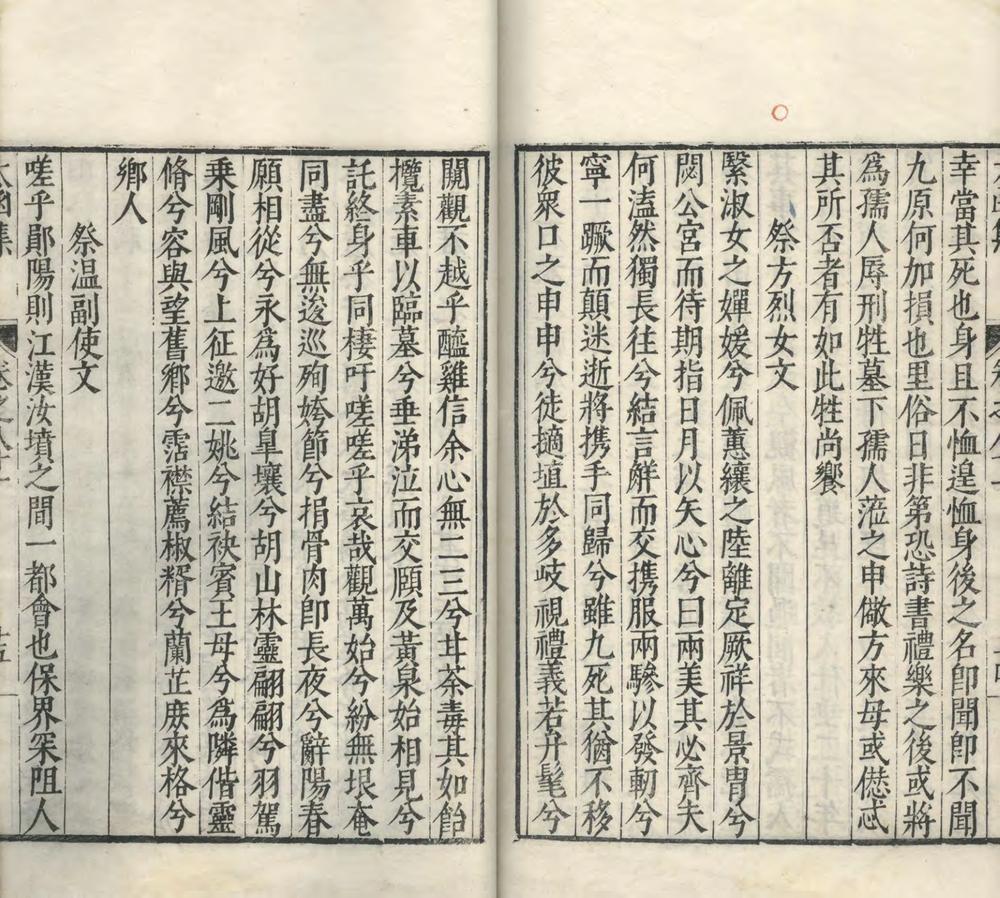 幸當其死也身且不恤遑恤身後之名卽聞卽不聞
九原何加損也里俗日非第恐詩書禮樂之後或將
爲孺人辱刑牲墓下孺人蒞之申儆方來毋或愆忒
其所否者有如此牲尚饗
祭方烈女文
繄淑女之嬋媛兮佩蕙纕之陸離定厥祥於景胄兮
閟公宮而待期指日月以矢心兮曰兩美其必齊夫
何溘然獨長往兮結言觧而交携服兩驂以發軔兮
寧一蹶而顛迷逝將携手同歸兮雖九死其猶不移
彼衆口之申申兮徒擿埴於多岐視禮義若弁髦兮
闚觀不越乎醯雞信余心無二三兮茹荼毒其如飴
攬素車以臨墓兮垂涕泣而交頤及黃泉始相見兮
託終身乎同棲吁嗟嗟乎哀哉觀萬始兮紛無垠奄
同盡兮無逡巡殉姱節兮捐骨肉卽長夜兮辭陽春
願相從兮永爲好胡皐壤兮胡山林靈翩翩兮羽駕
乗剛風兮上征邀二姚兮結袂賓王母兮爲隣偕靈
脩兮容與望舊鄉兮霑襟薦椒糈兮蘭芷庶來格兮
鄉人
祭温副使文
嗟乎鄖陽則江漢汝墳之間一都會也保界罙阻人